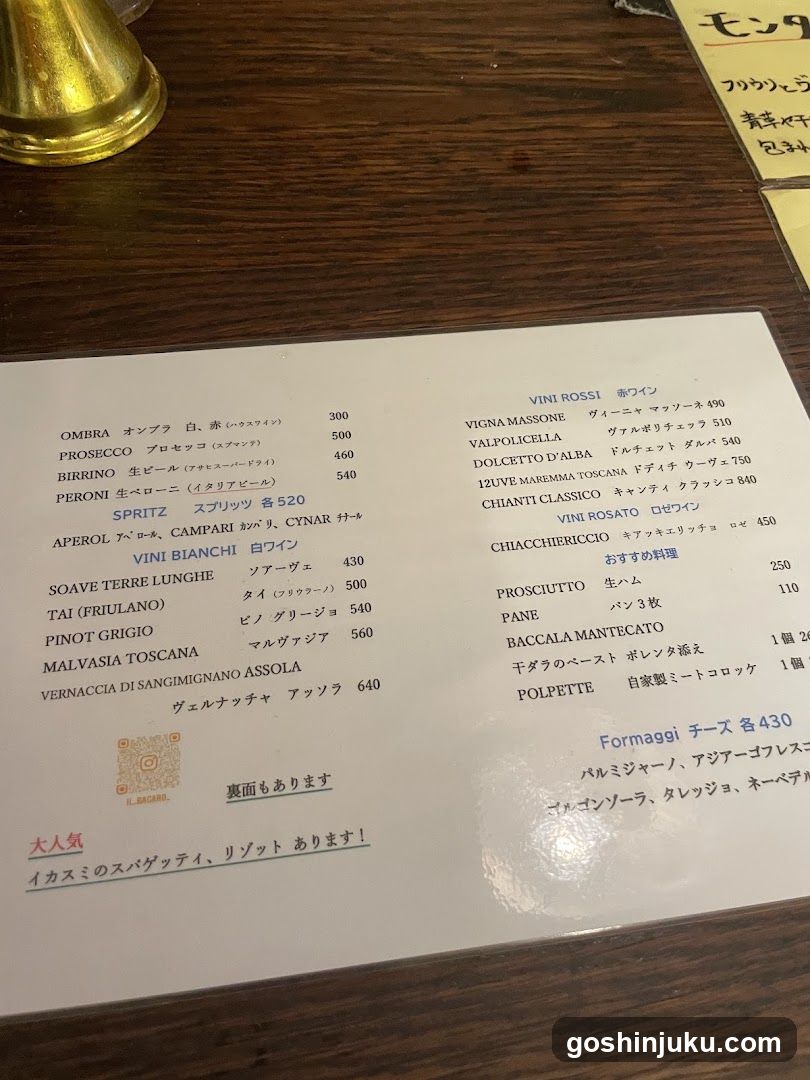 OMBRA オンブラ 白、赤 (ハウスワイン) 300
PROSECCO プロセッコ (スプマンテ) 500
BIRRINO 生ビール (アサヒスーパードライ) 460
PERONI 生ペローニ (イタリアビール) 540
SPRITZ スプリッツ 各520
APEROL ｱﾍﾟﾛｰﾙ、CAMPARI ｶﾝﾊﾟﾘ、CYNAR ﾁﾅｰﾙ
VINI BIANCHI 白ワイン
SOAVE TERRE LUNGHE ソアーヴェ 430
TAI (FRIULANO) タイ (フリウラーノ) 500
PINOT GRIGIO ピノ グリージョ 540
MALVASIA TOSCANA マルヴァジア 560
VERNACCIA DI SANGIMIGNANO ASSOLA
ヴェルナッチャ アッソラ 640
IL_BACARO_
裏面もあります
大人気
イカスミのスパゲッティ、リゾット あります！
VINI ROSSI 赤ワイン
VIGNA MASSONE ヴィーニャ マッソーネ 490
VALPOLICELLA ヴァルポリチェッラ 510
DOLCETTO D'ALBA ドルチェット ダルバ 540
12UVE MAREMMA TOSCANA ドディチ ウーヴェ 750
CHIANTI CLASSICO キャンティ クラッシコ 840
VINI ROSATO ロゼワイン
CHIACCHIERICCIO キアッキエリッチョ ロゼ 450
おすすめ料理
PROSCIUTTO 生ハム 250
PANE パン３枚 110
BACCALA MANTECATO
干ダラのペースト ポレンタ添え 1個
POLPETTE 自家製ミートコロッケ 1個
Formaggi チーズ 各430
パルミジャーノ、アジアーゴフレスコ
ゴルゴンゾーラ、タレッジョ、ネーベデル
モンタ
フリウリとヴ
青草や干
包まれ
goshinjuku.com